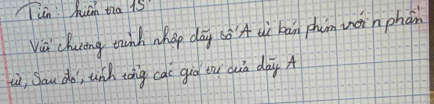 Tiên: kiểm tra 15'
Viết chương trình nhập dãy số A từ bàn phím với n phần
tử, Sau đó, tính tổng các giá trị của dãy A